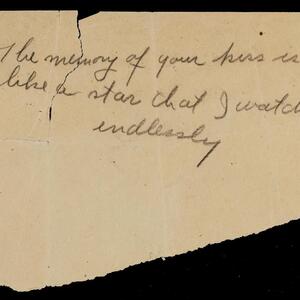 The memory of your kiss is
like a star that I watch
endlessly